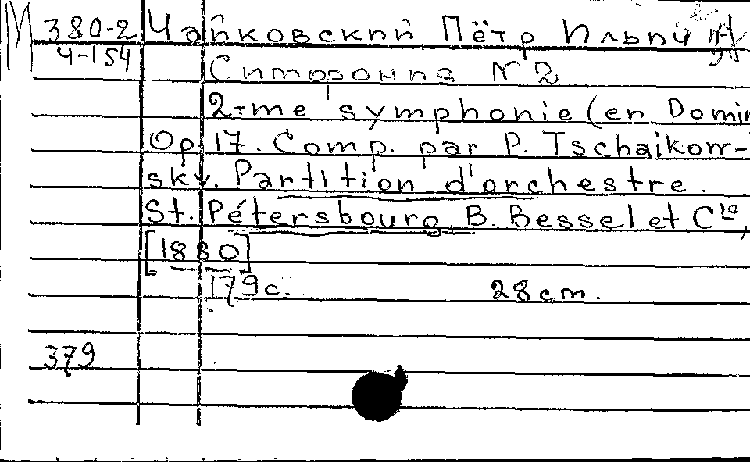 М 380-2 Чайковский Пётр Ильич
Ч-154 Симфония N 2
2-me symphonie (en Domin
Op. 17. Comp. par P. Tschaikow-
sky. Partition d'orchestre.
St. Pétersbourg B. Bessel et Cie,
[1880]
179 с. 28 cm.
379